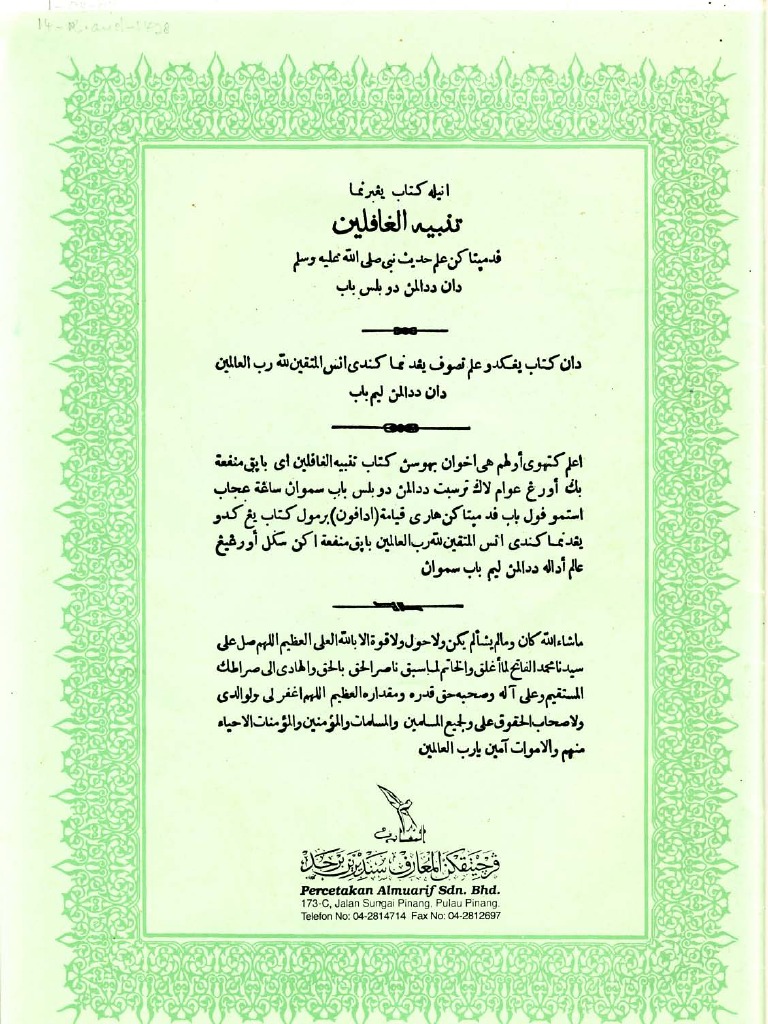 انيله کتاب يڠبرنما
تنبيه الغافلين
قد مپتاکن علم حديث نبي صلى الله عليه وسلم
دان ددالمڽ دو بلس باب
دان کتاب يڠکدو علم تصوف يڠد نما کندى انس المتقين لله رب العالمين
دان ددالمڽ ليم باب
اعلم کتهوى أولهم هى اخوان بهوسڽ کتاب تنبيه الغافلين اى باپق منفعة
بݢ أورڠ عوام لاݢ ترسبت ددالمڽ دو بلس باب سموان ساڠة عجاب
استمو ڤول باب قد مپتاکن هارى قيامة (ادافون) برمول کتاب يڠ کدو
يڠد نما کندى انس المتقين لله رب العالمين باپق منفعة اکن سݢل أورڠيڠ
عالم أداله ددالمڽ ليم باب سموان
ماشاء الله كان ومالم يشألم يكن ولاحول ولا قوة الا بالله العلى العظيم اللهم صل على
سيدنا محمد الفاتح لما أغلق والخاتم لما سبق ناصر الحق بالحق والهادى الى صراطك
المستقيم وعلى آله وصحبه حق قدره ومقداره العظيم اللهم اغفر لى ولوالدى
ولاصحاب الحقوق على ولجميع المسلمين والمسلمات والمؤمنين والمؤمنات الاحياء
منهم والاموات آمين يارب العالمين
المعارف
ڤرچيتقکن المعارف سنديرين برحد
Percetakan Almuarif Sdn. Bhd.
173-C, Jalan Sungai Pinang, Pulau Pinang.
Telefon No: 04-2814714 Fax No: 04-2812697